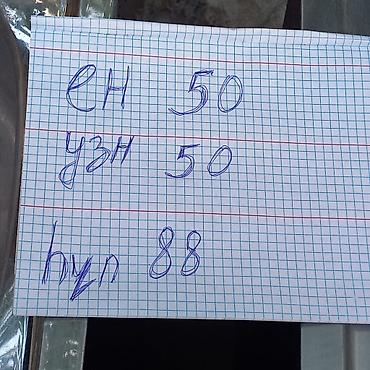 ен 50
узн 50
һул 88